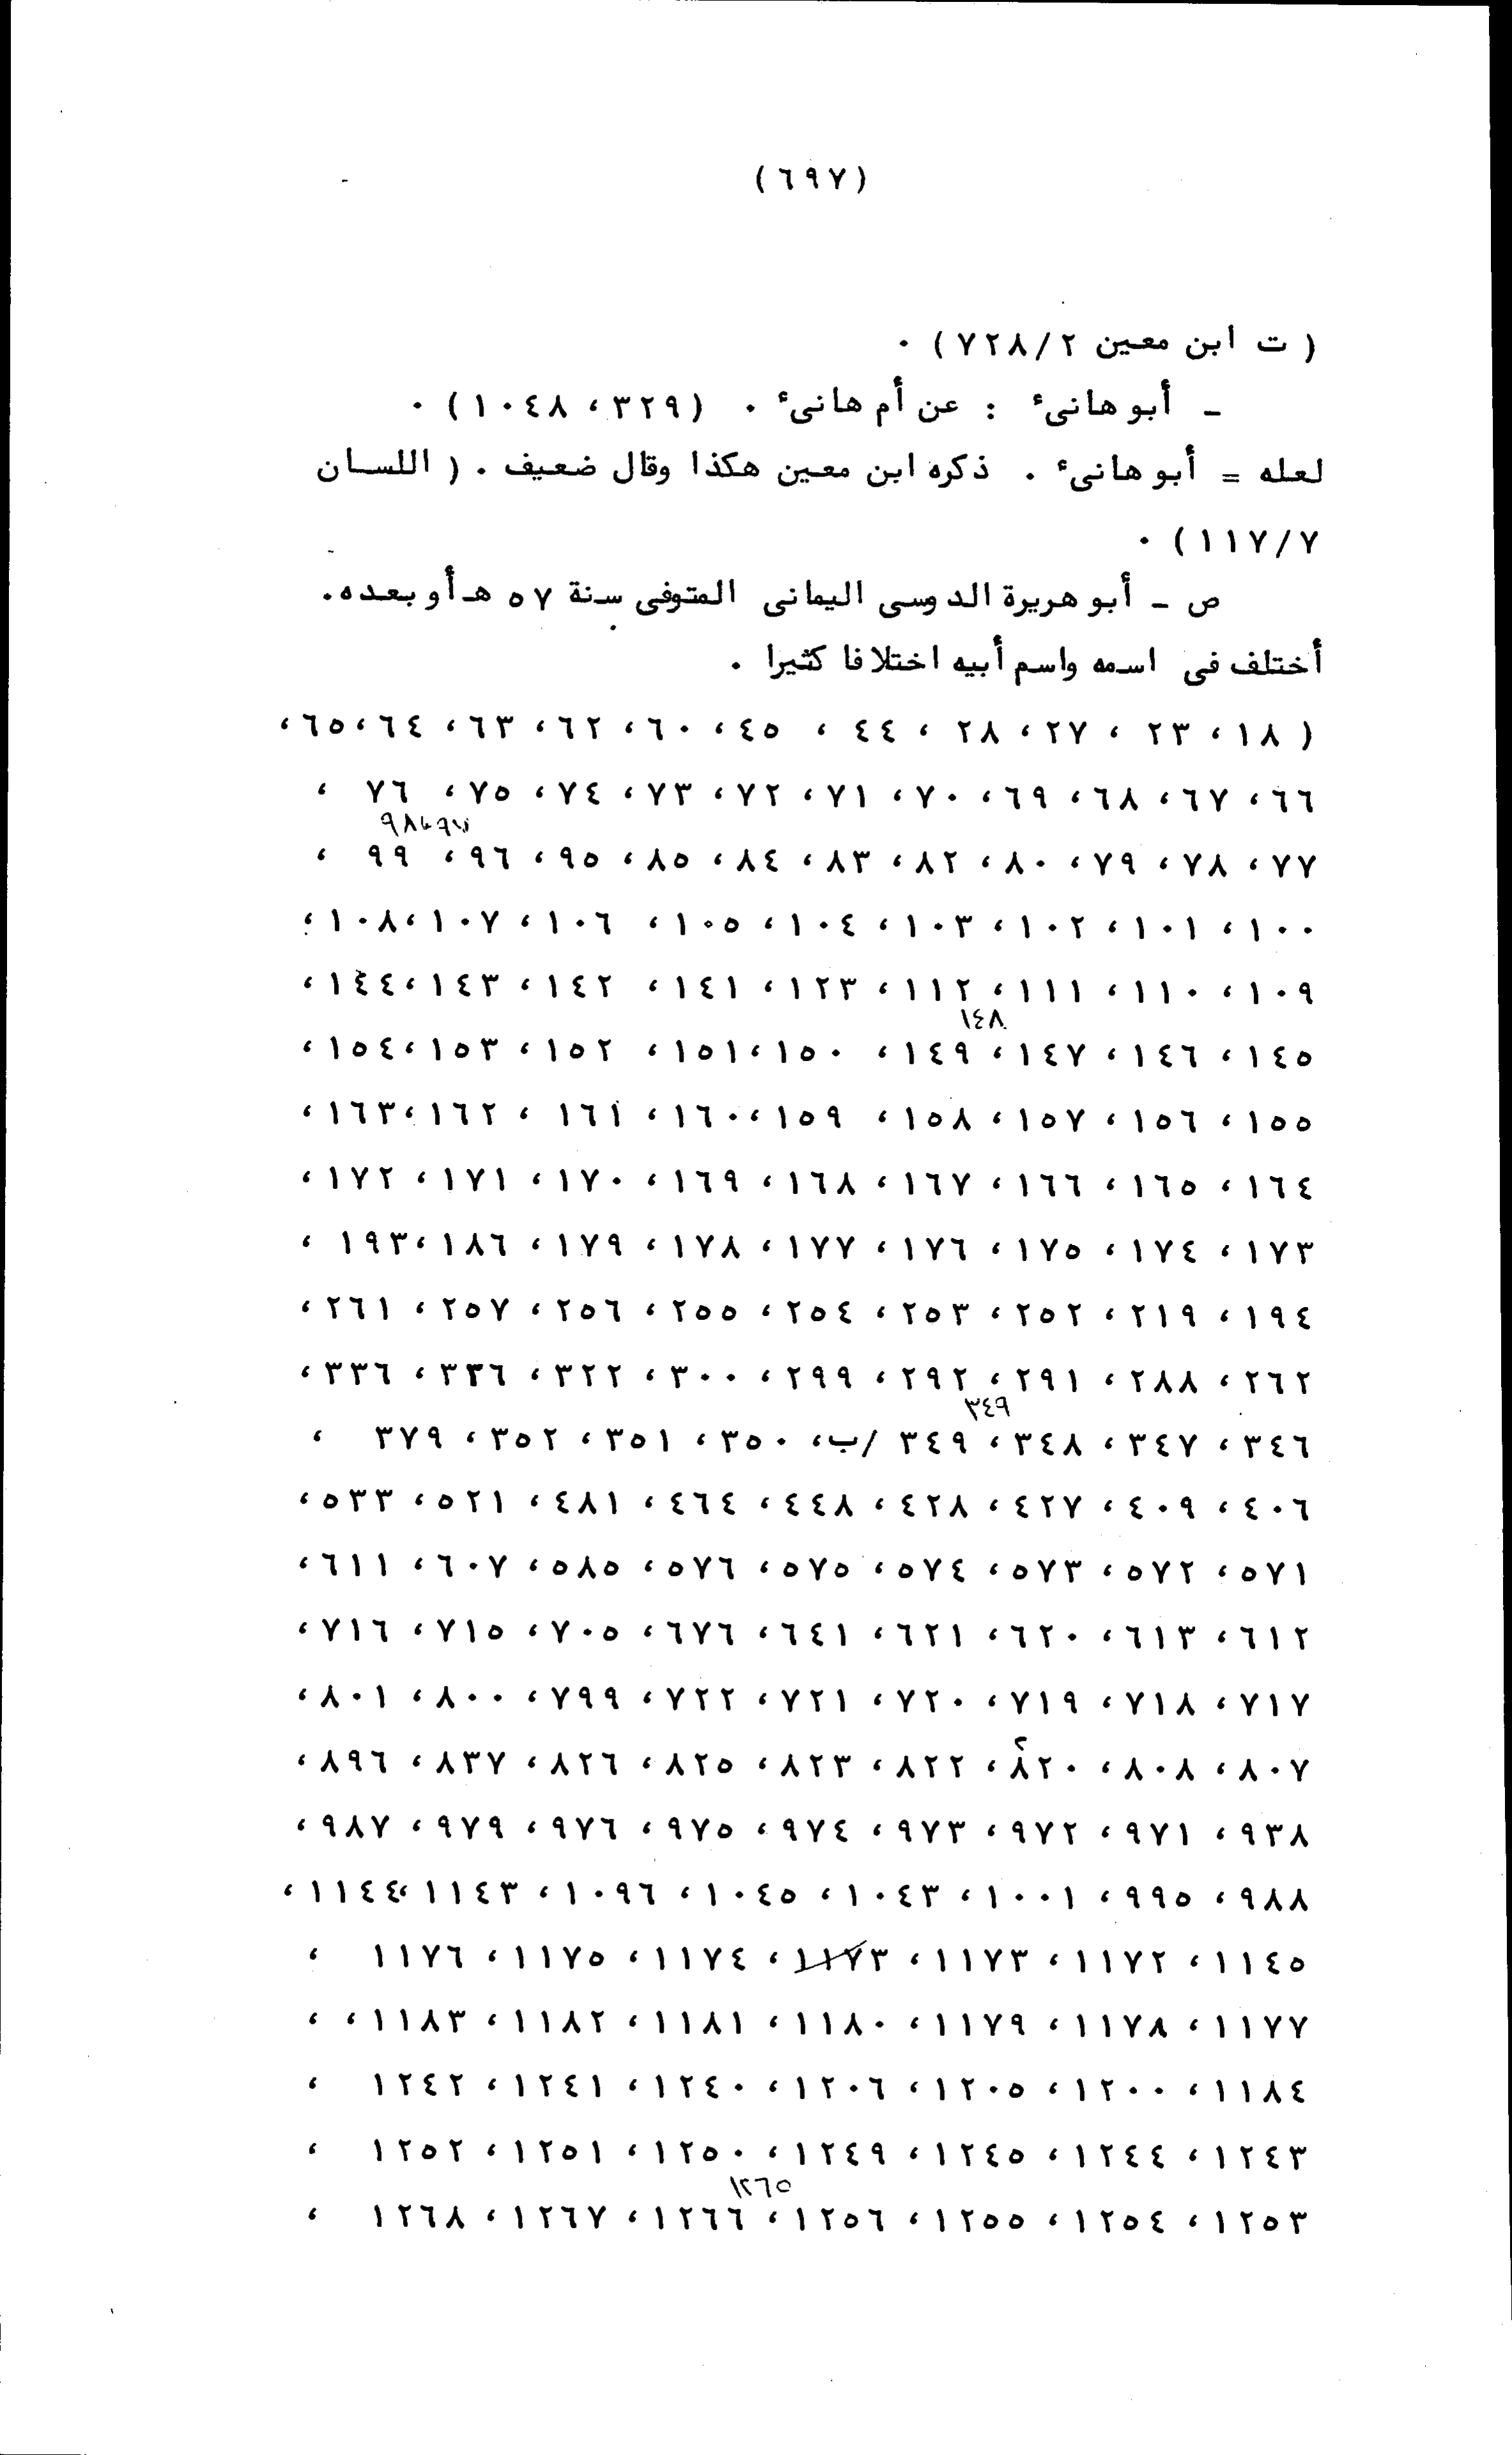 (٦٩٧)
( ت ابن معين ٧٢٨/٢) ٠
ـ أبو هانىء : عن أم هانىء ٠ (٣٢٩، ١٠٤٨) ٠
لعله = أبو هانىء ٠ ذكره ابن معين هكذا وقال ضعيف ٠ ( اللسان
١١٧/٧) ٠
ص ـ أبو هريرة الدوسى اليمانى المتوفى سنة ٥٧ هـ أو بعده٠
أختلف فى اسمه واسم أبيه اختلافا كثيرا ٠
( ١٨، ٢٣ ، ٢٧، ٢٨ ، ٤٤ ، ٤٥ ، ٦٠، ٦٢، ٦٣، ٦٤، ٦٥،
٦٦، ٦٧، ٦٨، ٦٩، ٧٠، ٧١، ٧٢، ٧٣، ٧٤، ٧٥، ٧٦ ،
٩٧، ٩٨
٧٧، ٧٨، ٧٩، ٨٠، ٨٢، ٨٣، ٨٤، ٨٥، ٩٥، ٩٦، ٩٩ ،
١٠٠، ١٠١، ١٠٢، ١٠٣، ١٠٤، ١٠٥، ١٠٦ ، ١٠٧، ١٠٨،
١٠٩، ١١٠، ١١١، ١١٢، ١٢٣، ١٤١، ١٤٢ ، ١٤٣، ١٤٤،
١٤٨
١٤٥، ١٤٦، ١٤٧، ١٤٩، ١٥٠، ١٥١، ١٥٢ ، ١٥٣، ١٥٤،
١٥٥، ١٥٦، ١٥٧، ١٥٨، ١٥٩، ١٦٠، ١٦١ ، ١٦٢، ١٦٣،
١٦٤، ١٦٥، ١٦٦، ١٦٧، ١٦٨، ١٦٩، ١٧٠، ١٧١، ١٧٢،
١٧٣، ١٧٤، ١٧٥، ١٧٦، ١٧٧، ١٧٨، ١٧٩، ١٨٦، ١٩٣ ،
١٩٤، ٢١٩، ٢٥٢، ٢٥٣، ٢٥٤، ٢٥٥، ٢٥٦، ٢٥٧، ٢٦١،
٢٦٢، ٢٨٨، ٢٩١، ٢٩٢، ٢٩٩، ٣٠٠، ٣٢٢، ٣٣٦، ٣٣٦،
٣٤٩
٣٤٦، ٣٤٧، ٣٤٨، ٣٤٩ /ب، ٣٥٠، ٣٥١، ٣٥٢، ٣٧٩ ،
٤٠٦، ٤٠٩، ٤٢٧، ٤٢٨، ٤٤٨، ٤٦٤، ٤٨١، ٥٢١، ٥٣٣،
٥٧١، ٥٧٢، ٥٧٣، ٥٧٤، ٥٧٥، ٥٧٦، ٥٨٥، ٦٠٧، ٦١١،
٦١٢، ٦١٣، ٦٢٠، ٦٢١، ٦٤١، ٦٧٦، ٧٠٥، ٧١٥، ٧١٦،
٧١٧، ٧١٨، ٧١٩، ٧٢٠، ٧٢١، ٧٢٢، ٧٩٩، ٨٠٠، ٨٠١،
٨٠٧، ٨٠٨، ٨٢٠، ٨٢٢، ٨٢٣، ٨٢٥، ٨٢٦، ٨٣٧، ٨٩٦،
٩٣٨، ٩٧١، ٩٧٢، ٩٧٣، ٩٧٤، ٩٧٥، ٩٧٦، ٩٧٩، ٩٨٧،
٩٨٨، ٩٩٥، ١٠٠١، ١٠٤٣، ١٠٤٥، ١٠٩٦، ١١٤٣، ١١٤٤،
١١٤٥، ١١٧٢، ١١٧٣، ١١٧٣، ١١٧٤، ١١٧٥، ١١٧٦ ،
١١٧٧، ١١٧٨، ١١٧٩، ١١٨٠، ١١٨١، ١١٨٢، ١١٨٣، ،
١١٨٤، ١٢٠٠، ١٢٠٥، ١٢٠٦، ١٢٤٠، ١٢٤١، ١٢٤٢ ،
١٢٤٣، ١٢٤٤، ١٢٤٥، ١٢٤٩، ١٢٥٠، ١٢٥١، ١٢٥٢ ،
١٢٦٥
١٢٥٣، ١٢٥٤، ١٢٥٥، ١٢٥٦، ١٢٦٦، ١٢٦٧، ١٢٦٨ ،